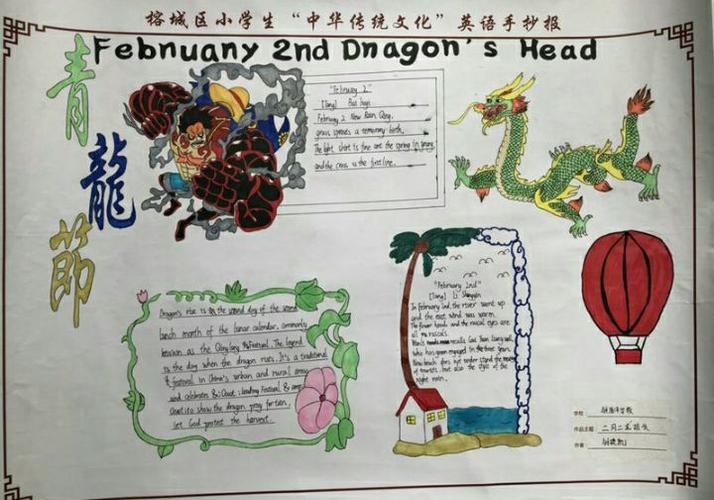 榕城区小学生“中华传统文化”英语手抄报
Febnuany 2nd Dnagon's Head
青
龍
節
"February 2"
[Tang] Bai Juyi
February 2 New Rain Qing,
grass sprouts a temporary birth.
The light shirt is fine are the spring in young
and the cross is the first line.
"February 2nd"
[Tang] Li Shangyin
In February 2nd, the river went up
and the east wind was warm.
The flower beads and the muscal eyes are
all rascals.
who has been engaged in the three years
New beach does not
of tourists, but also the style of the
night rain.
Dragon's rise is the second day of the second
lunch month of the lunar calendar, commonly
known as the Qinglong Festival. The legend
is the day when the dragon rises. It's a traditional
festival in China's urban and rural areas
and celebrates
to show the dragon pray for rain,
let God protect the harvest.
学校:
作品主题: 二月二龙抬头
作者: